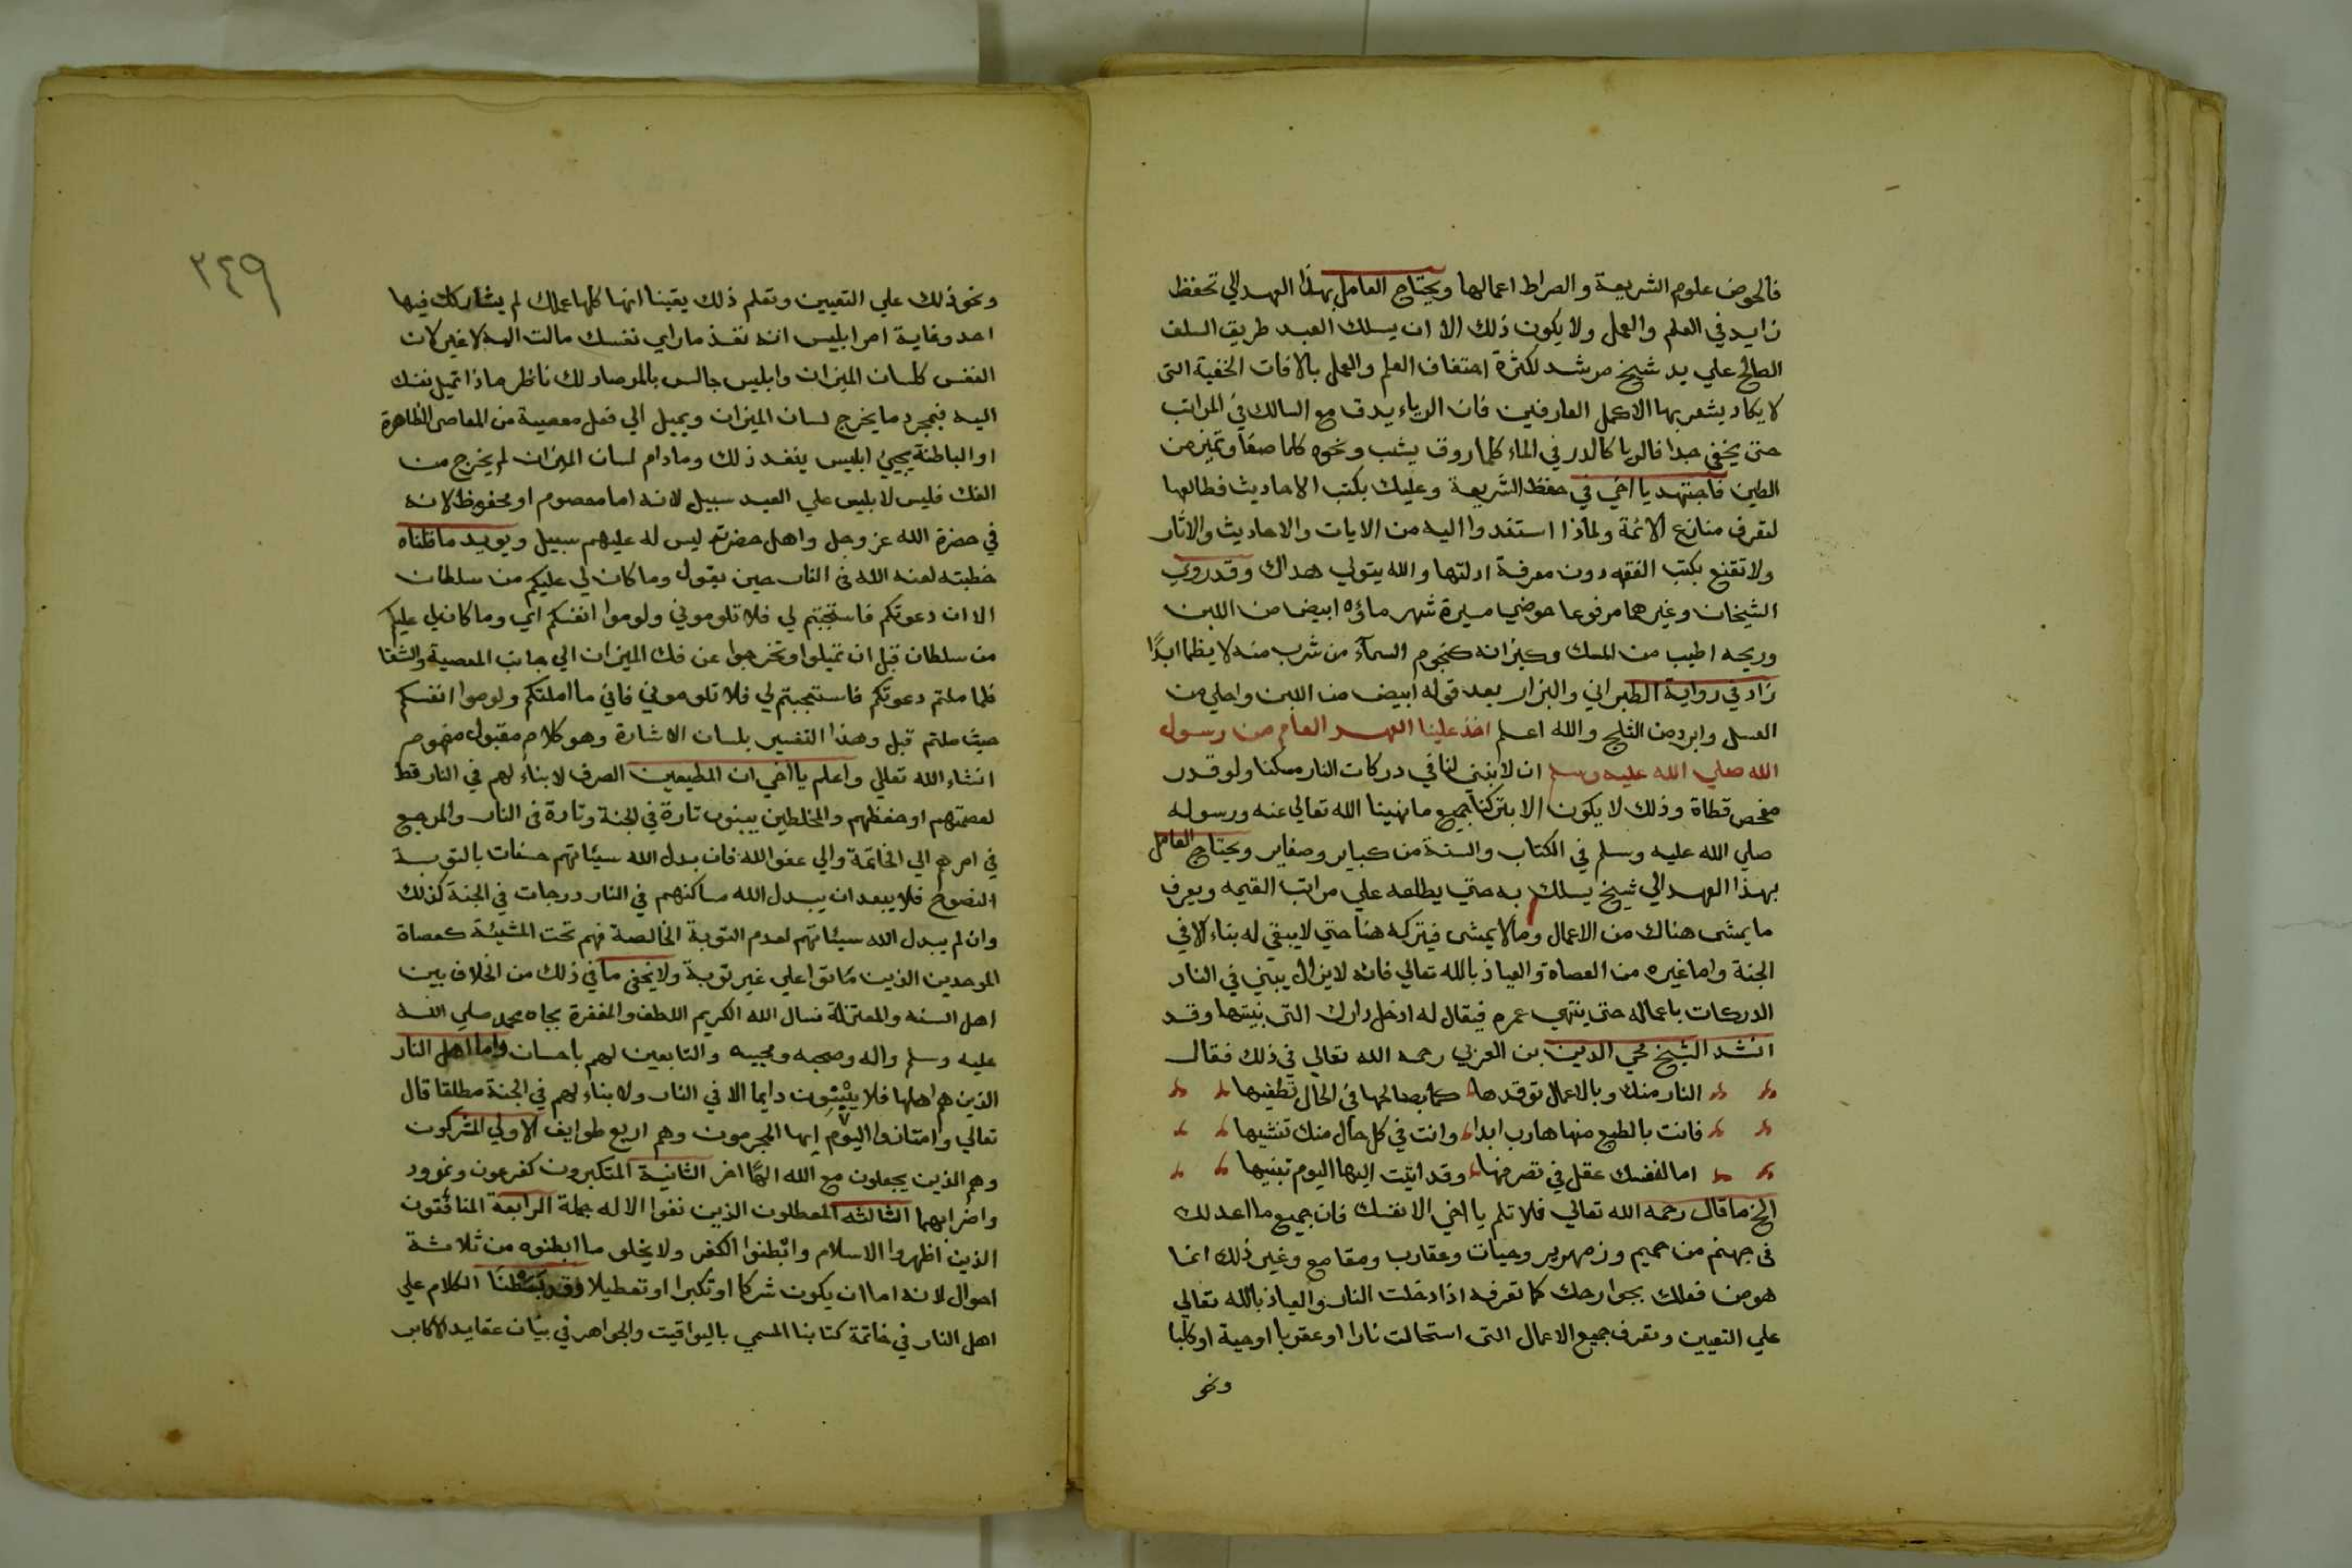 فالحوض علوم الشريعة والصراط اعمالها ويحتاج العامل بهذا العهد الي تحفظ
زايد في العلم والعمل ولا يكون ذلك الا ان يسلك العبد طريق السلف
الصالح علي يد شيخ مرشد لكثرة احتفاف العلم والعمل بالافات الخفية التى
لا يكاد يشعر بها الا كمل العارفين فان الرياء يدق مع السالك في المراتب
حتى يخفى جدا فالريا كالدر في الماء كلما روق يشب ونحوه كلما صفا وتميز من
الطين فاجتهد يا اخي في حفظ الشريعة وعليك بكتب الاحاديث فطالعها
لتعرف منازع الائمة ولماذا استندوا اليه من الايات والاحاديث والاثار
ولا تقنع بكتب الفقه دون معرفة ادلتها والله يتولي هداك وقد روي
الشيخان وغيرهما مرفوعا حوضي مسيرة شهر ماؤه ابيض من اللبن
وريحه اطيب من المسك وكيزانه كنجوم السمآء من شرب منه لا يظما ابدًا
زاد في رواية الطبراني والبزار بعد قوله ابيض من اللبن واحلي من
العسل وابرد من الثلج والله اعلم اخذ علينا العهد العام من رسول
الله صلي الله عليه وسلم ان لا نبني لنا في دركات النار مسكنا ولو قدر
مفحص قطاة وذلك لا يكون الا بتركنا جميع ما نهينا الله تعالي عنه ورسوله
صلي الله عليه وسلم في الكتاب والسنة من كباير وصغاير ويحتاج العامل
بهذا العهد الي شيخ يسلك به حتي يطلعه علي مراتب القيمه ويعرف
ما يمشى هناك من الاعمال وما لا يمشى فيتركه هنا حتي لا يبقي له بناء الا في
الجنة واما غيره من العصاة والعياذ بالله تعالي فانه لا يزال يبني في النار
الدركات باعماله حتى ينتهي عمره فيقال له ادخل دارك التى بنيتها وقد
انشد الشيخ محي الدين بن العربي رحمه الله تعالي في ذلك فقال
النار منك وبالاعمال توقدها كما بصالحها في الحال تطفيها
فانت بالطبع منها هارب ابدا وانت في كل حال منك تنشيها
اما لنفسك عقل في تصرفها وقد اتيت اليها اليوم تبنيها
الخ ما قال رحمه الله تعالي فلا تلم يا اخي الا نفسك فان جميع ما اعد لك
فى جهنم من حميم وزمهرير وحيات وعقارب ومقامع وغير ذلك انما
هو من فعلك بجوارحك كما تعرفه اذا دخلت النار والعياذ بالله تعالي
علي التعيين وتعرف جميع الاعمال التى استحالت نارا او عقربا او حية او كلبا
ونحو
٢٤٩
ونحو ذلك علي التعيين وتعلم ذلك يقينا انها كلها عملك لم يشاركك فيها
احد وغاية امر ابليس انه نفذ ما راي نفسك مالت اليه لا غير لان
النفس كلسان الميزان وابليس جالس بالمرصاد لك ناظر ماذا تميل نفسك
اليه فبمجرد ما يخرج لسان الميزان ويميل الي فعل معصية من المعاصى الظاهرة
او الباطنة يجيئ ابليس ينفذ ذلك ومادام لسان الميزان لم يخرج من
الفك فليس لابليس علي العبد سبيل لانه اما معصوم او محفوظ لانه
في حضرة الله عز وجل واهل حضرته ليس له عليهم سبيل ويويد ما قلناه
خطبته لعنه الله فى النار حين يقول وما كان لي عليكم من سلطان
الا ان دعوتكم فاستجبتم لي فلا تلوموني ولوموا انفسكم اي وما كان لي عليكم
من سلطان قبل ان تميلوا وتخرجوا عن فك الميزان الي جانب المعصية والشقا
فلما ملتم دعوتكم فاستجبتم لي فلا تلوموني فاني ما املتكم ولوموا انفسكم
حيث ملتم قبل وهذا التفسير بلسان الاشارة وهو كلام مقبول مفهوم
انشاء الله تعالي واعلم يا اخي ان المطيعين الصرف لا بناء لهم في النار قط
لعصمتهم او حفظهم والمخلطين يبنون تارة في الجنة وتارة فى النار والمرجع
في امرهم الي الخاتمة والي عفو الله فان بدل الله سيئاتهم حسنات بالتوبة
النصوح فلا يبعد ان يبدل الله مساكنهم في النار درجات في الجنة كذلك
وان لم يبدل الله سيئاتهم لعدم التوبة الخالصة فهم تحت المشيئة كعصاة
الموحدين الذين ماتوا علي غير توبة ولا يخفى ما في ذلك من الخلاف بين
اهل السنه والمعتزلة نسال الله الكريم اللطف والمغفرة بجاه محمد صلي الله
عليه وسلم واله وصحبه ومحبيه والتابعين لهم باحسان واما اهل النار
الذين هم اهلها فلا يبنون دايما الا في النار ولا بناء لهم في الجنة مطلقا قال
تعالي وامتازوا اليوم ايها المجرمون وهم اربع طوايف الاولي المشركون
وهم الذين يجعلون مع الله الهًا اخر الثانية المتكبرون كفرعون ونمرود
واضرابهما الثالثه المعطلون الذين نفوا الاله جملة الرابعة المنافقون
الذين اظهروا الاسلام وابطنوا الكفر ولا يخلو ما ابطنوه من ثلاثة
احوال لانه اما ان يكون شركا او تكبرا او تعطيلا وقد بسطنا الكلام علي
اهل النار في خاتمة كتابنا المسمي باليواقيت والجواهر في بيان عقايد الاكابر